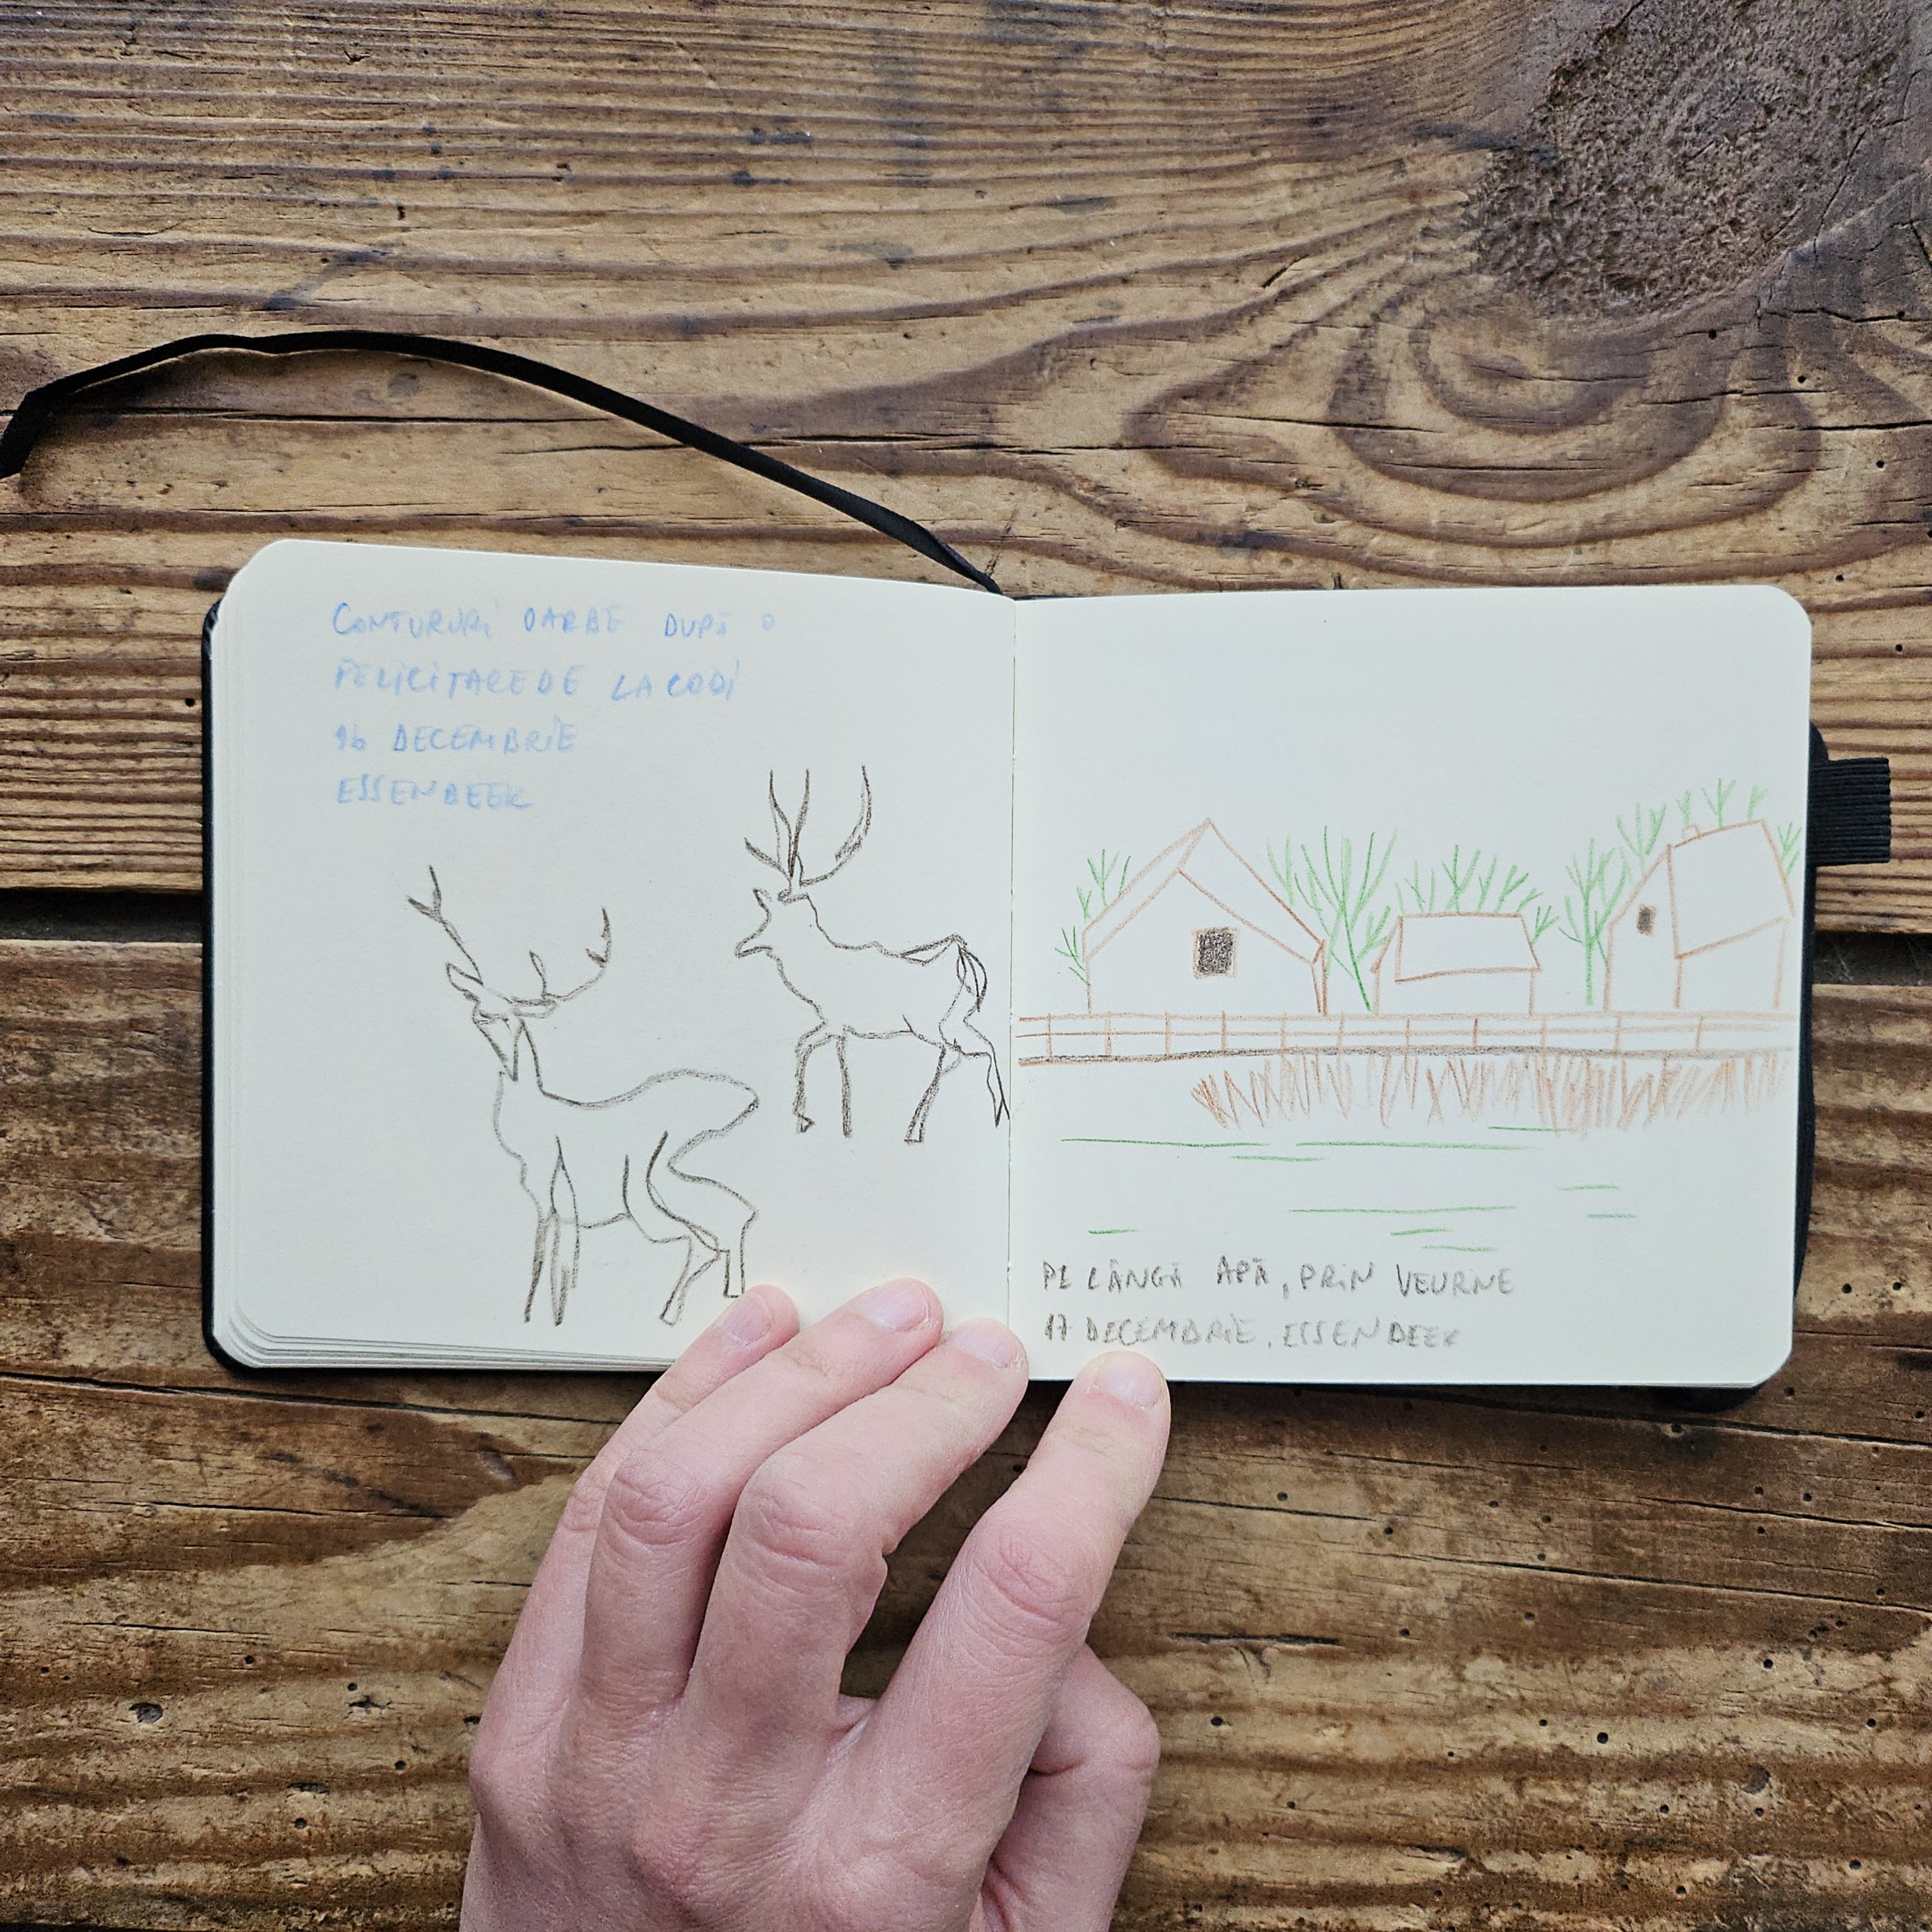 CONTURURI OARBE DUPĂ O
FELICITARE DE LA CODI
16 DECEMBRIE
ESSENBEEK
PE LÂNGĂ APĂ, PRIN VEURNE
17 DECEMBRIE, ESSENBEEK